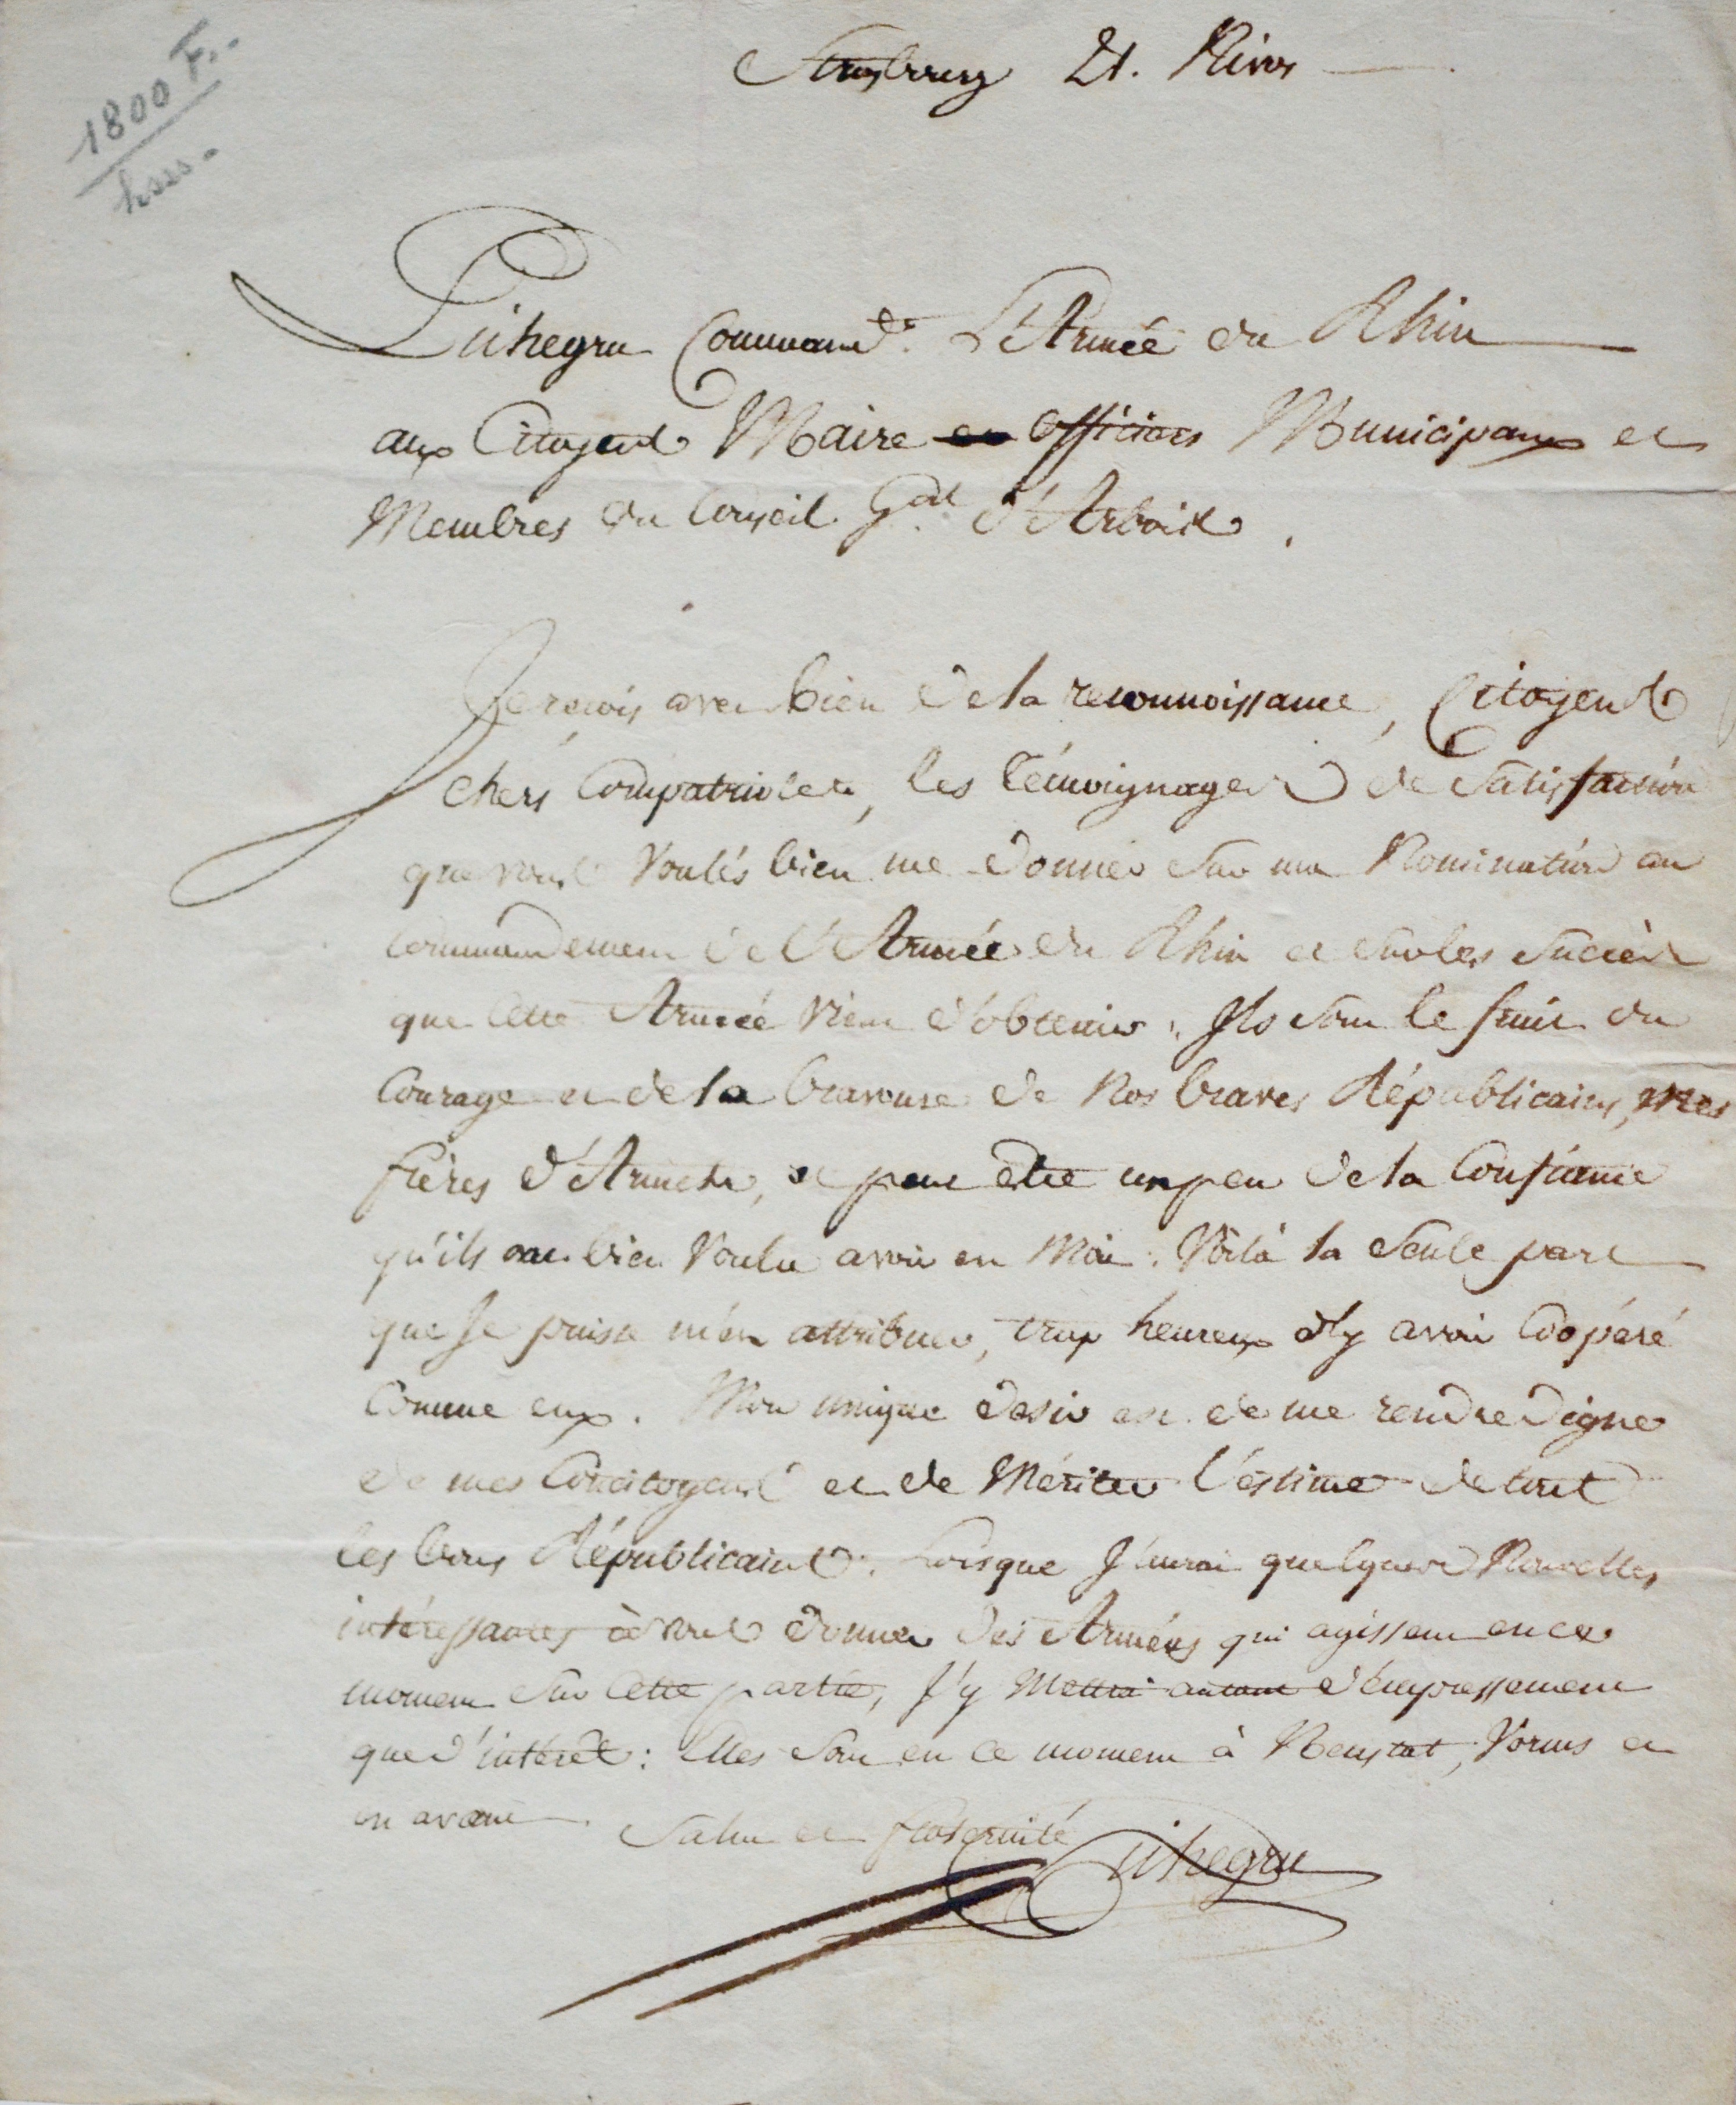 Strasbourg 21. Nivos
1800 F.
Pichegru Command.t L'Armée du Rhin
aux Citoyens Maire et officiers Municipaux et
Membres du Conseil Gral d'Arbois.
Je reçois avec bien de la reconnoissance, Citoyens
chers Compatriotes, les témoignages de Satisfaction
que vous Voulés bien me donner Sur ma Nomination au
Commandement de l'Armée du Rhin et sur les Succès
que Cette Armée vient d'obtenir : Ils sont le fruit du
Courage et de la bravoure de Nos braves Républicains, mes
frères d'Armes, et peut etre un peu de la Confiance
qu'ils ont bien Voulu avoir en Moi : Voilà la Seule part
que Je puisse m'en attribuer, trop heureux d'y avoir Coopéré
Comme eux. Mon unique desir est de me rendre digne
de mes Concitoyens et de Mériter l'estime de tous
les bons Républicains. Lorsque J'aurai quelques Nouvelles
intéressantes à vous donner des Armées qui agissent en ce
moment Sur Cette partie, J'y Mettrai autant d'empressement
que d'intérêt : Elles Sont en ce moment à Neustat, Vorms et
en avant. Salut et fraternité
Pichegru